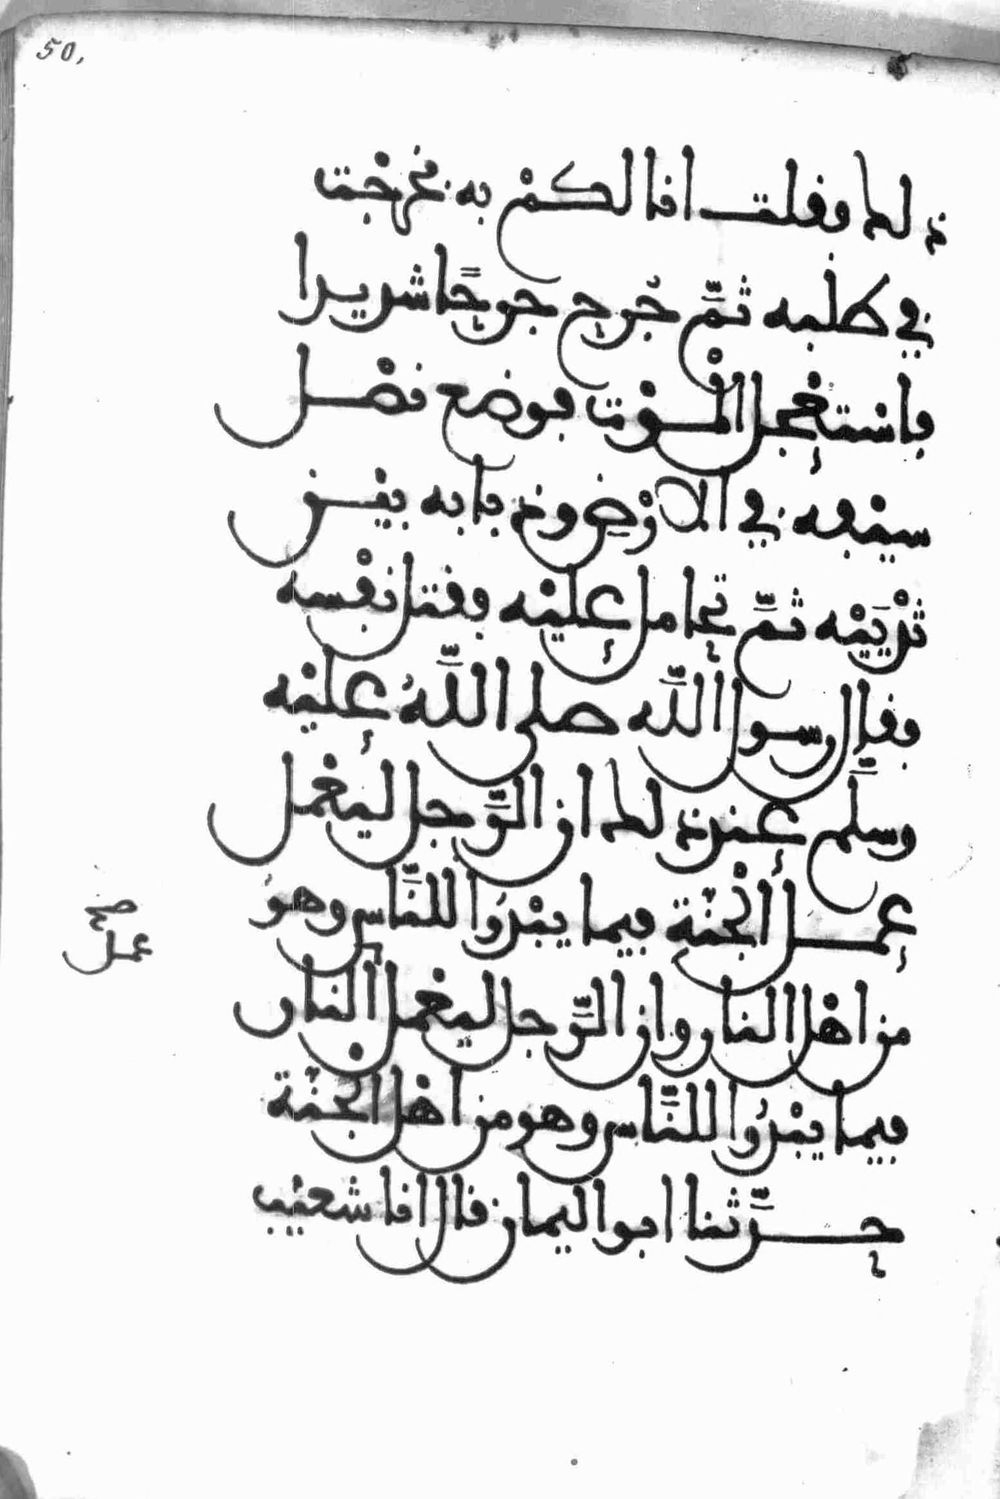 50,
ذلك وقلت انا لكمْ به فخرجْت
في طلبه ثمّ جُرِح جرحًا شديدا
فاسْتعْجل الْمَوْت فوضع نصْل
سيْفه في الارْضِ وذبابه بيْن
ثدْيَيْه ثمّ تحامل عليْه فقتل نفْسه
فقال رسول اللّه صلى اللّهُ عليْه
وسلّم عند ذلك ان الرّجل ليعْمل
عمل الْجنّةِ فيما يبْدُوا للنّاس وهوُ
صح
عمل
من اهْل النار وان الرّجل ليعْمل النار
فيما يبْدُوا للنّاس وهو من اهْل الجنّة
حدّثنا ابو اليمان قال انا شعيْب